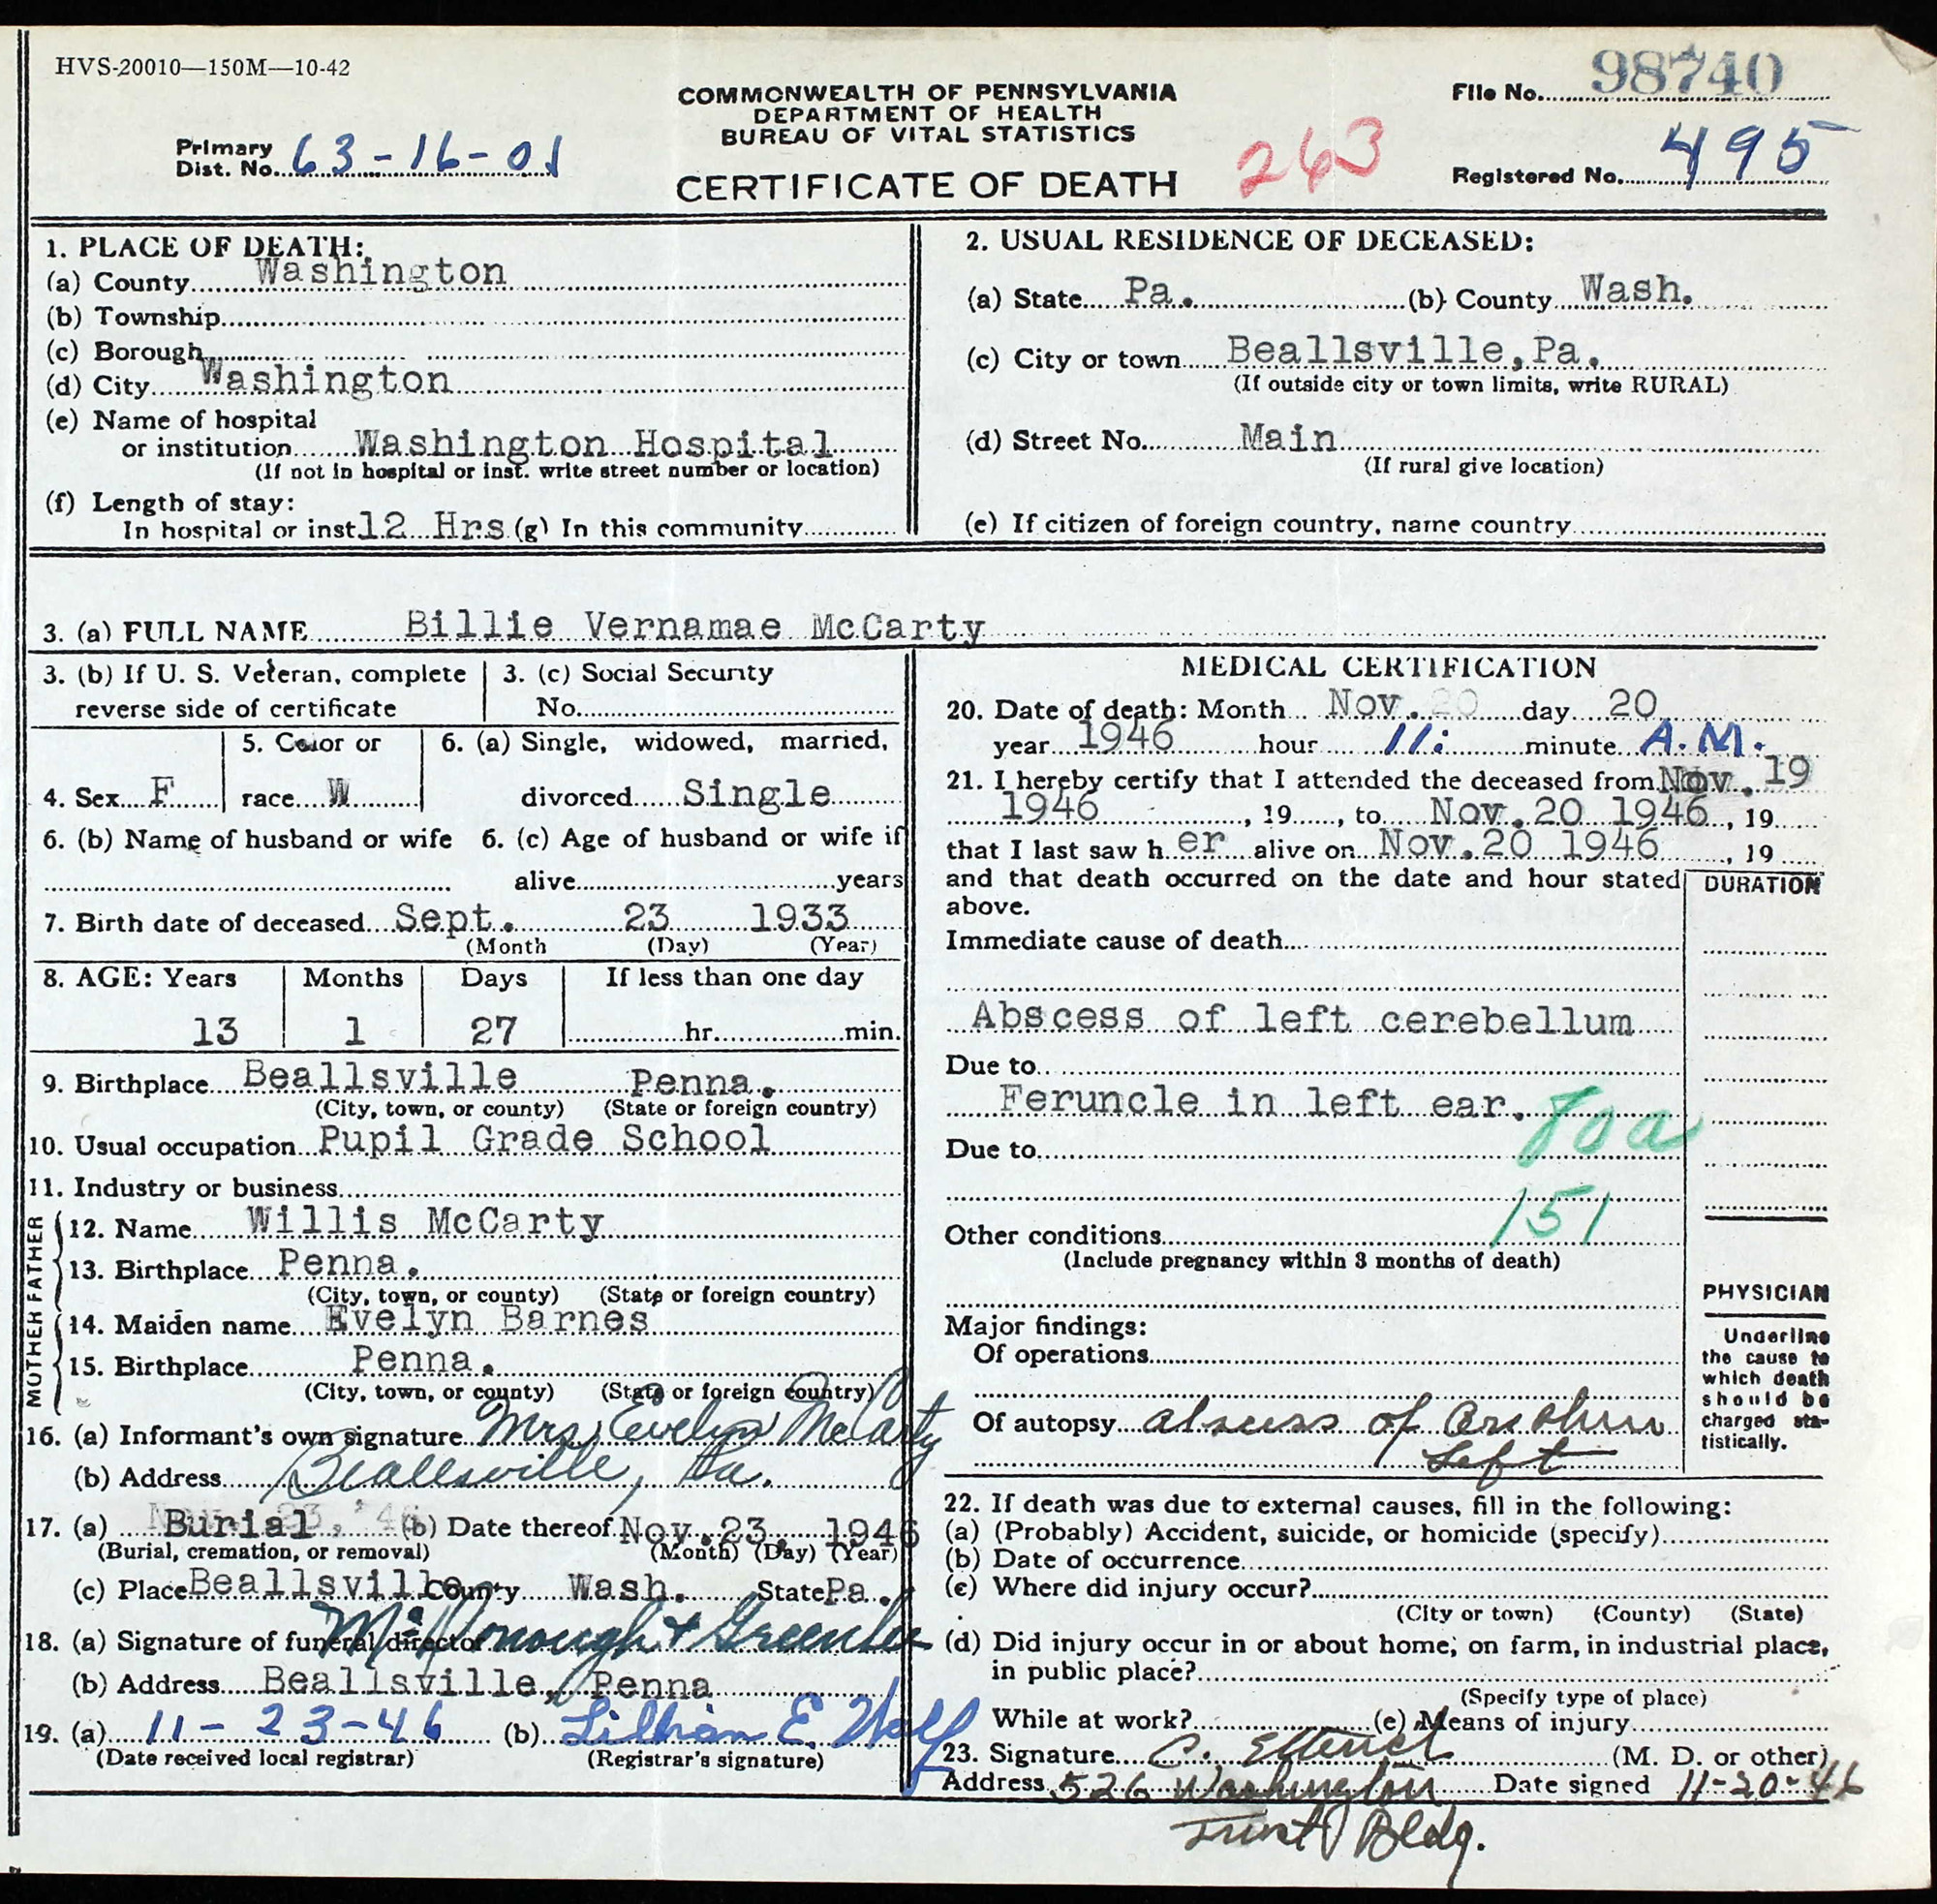 HVS-20010—150M—10-42
COMMONWEALTH OF PENNSYLVANIA
DEPARTMENT OF HEALTH
BUREAU OF VITAL STATISTICS
CERTIFICATE OF DEATH
263
File No. 98740
Primary
Dist. No. 63-16-01
Registered No. 495
1. PLACE OF DEATH:
(a) County Washington
(b) Township
(c) Borough
(d) City Washington
(e) Name of hospital
or institution Washington Hospital
(If not in hospital or inst. write street number or location)
(f) Length of stay:
In hospital or inst. 12 Hrs (g) In this community
2. USUAL RESIDENCE OF DECEASED:
(a) State Pa. (b) County Wash.
(c) City or town Beallsville, Pa.
(If outside city or town limits, write RURAL)
(d) Street No. Main
(If rural give location)
(e) If citizen of foreign country, name country
3. (a) FULL NAME Billie Vernamae McCarty
3. (b) If U. S. Veteran, complete
reverse side of certificate
3. (c) Social Security
No.
4. Sex F
5. Color or
race W
6. (a) Single, widowed, married,
divorced Single
6. (b) Name of husband or wife
6. (c) Age of husband or wife if
alive years
7. Birth date of deceased Sept. 23 1933
(Month (Day) (Year)
8. AGE: Years Months Days If less than one day
13 1 27 hr. min.
9. Birthplace Beallsville Penna.
(City, town, or county) (State or foreign country)
10. Usual occupation Pupil Grade School
11. Industry or business
FATHER
12. Name Willis McCarty
13. Birthplace Penna.
(City, town, or county) (State or foreign country)
MOTHER
14. Maiden name Evelyn Barnes
15. Birthplace Penna.
(City, town, or county) (State or foreign country)
16. (a) Informant's own signature Mrs Evelyn McCarty
(b) Address Beallsville, Pa.
17. (a) Burial (b) Date thereof Nov. 23, 1946
(Burial, cremation, or removal) (Month) (Day) (Year)
(c) Place Beallsville County Wash. State Pa.
18. (a) Signature of funeral director McDonough & Greenlee
(b) Address Beallsville, Penna
19. (a) 11-23-46 (b) Lillian E. Wolf
(Date received local registrar) (Registrar's signature)
MEDICAL CERTIFICATION
20. Date of death: Month Nov. 20 day 20
year 1946 hour 11: minute A.M.
21. I hereby certify that I attended the deceased from Nov. 19
1946, 19, to Nov. 20 1946, 19
that I last saw h er alive on Nov. 20 1946, 19
and that death occurred on the date and hour stated
above.
DURATION
Immediate cause of death
Abscess of left cerebellum
Due to
Feruncle in left ear.
80a
Due to
151
Other conditions
(Include pregnancy within 3 months of death)
Major findings:
Of operations
Of autopsy abscess of
Left
PHYSICIAN
Underline
the cause to
which death
should be
charged sta-
tistically.
22. If death was due to external causes, fill in the following:
(a) (Probably) Accident, suicide, or homicide (specify)
(b) Date of occurrence
(c) Where did injury occur?
(City or town) (County) (State)
(d) Did injury occur in or about home, on farm, in industrial place,
in public place?
(Specify type of place)
While at work? (e) Means of injury
23. Signature C. (M. D. or other)
Address 526 Washington Date signed 11-20-46
Trust Bldg.